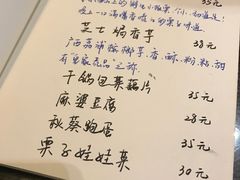 35元
芝士焗香芋 38元
广西荔浦槟榔芋，香、酥、粉、粘、甜
干锅包菜藕片 35元
麻婆豆腐 28元
秋葵炒蛋 35元
栗子娃娃菜 30元